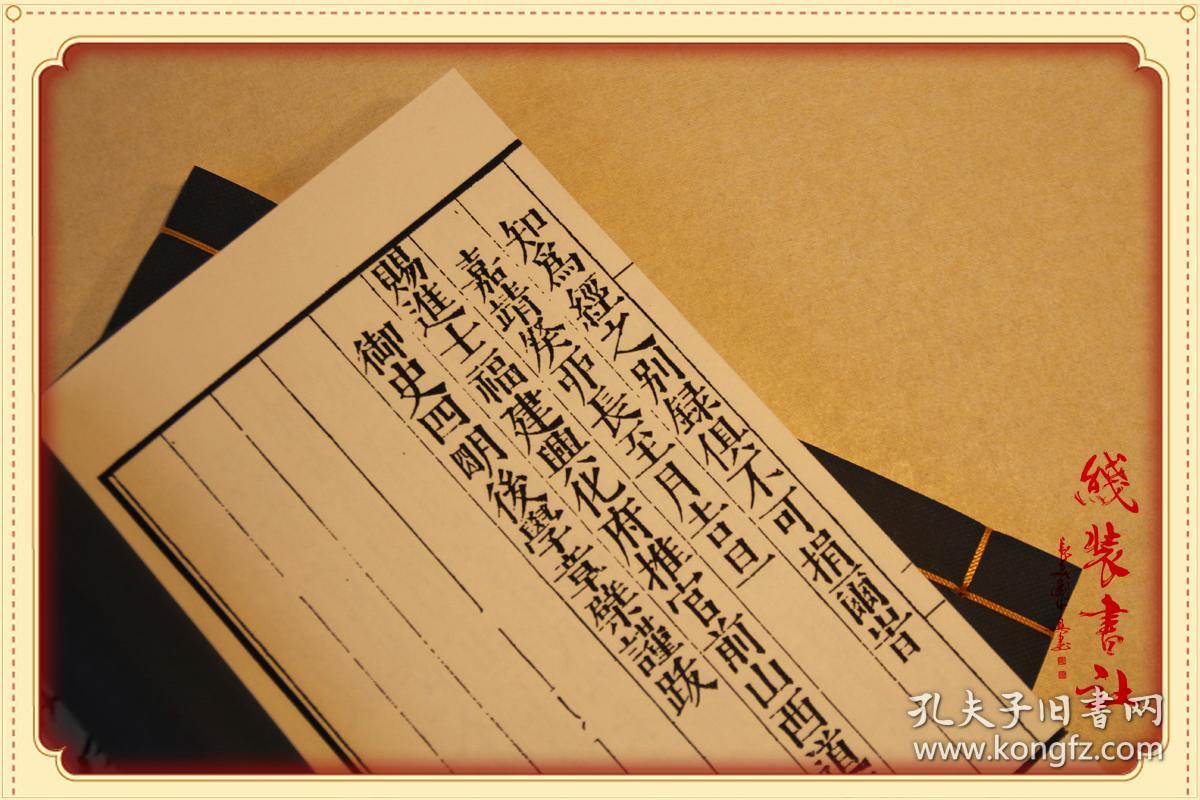 知爲經之别録俱不可捐爾旹
嘉靖癸卯長至月吉旦
賜進士福建興化府推官前山西道
御史四明後學章檗謹跋
綫装書社
孔夫子旧书网
www.kongfz.com